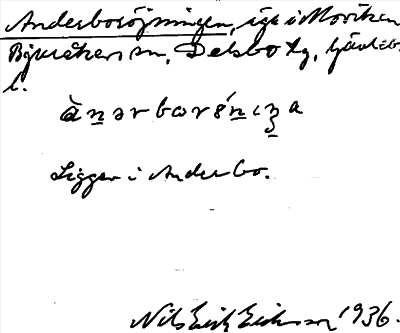 Anderboröjningen, äga i Moviken
Bjuråkers sn, Delsbo tg, Gävleb.
l.
Ligger i Anderbo.
Nils Erik Eriksson 1936.